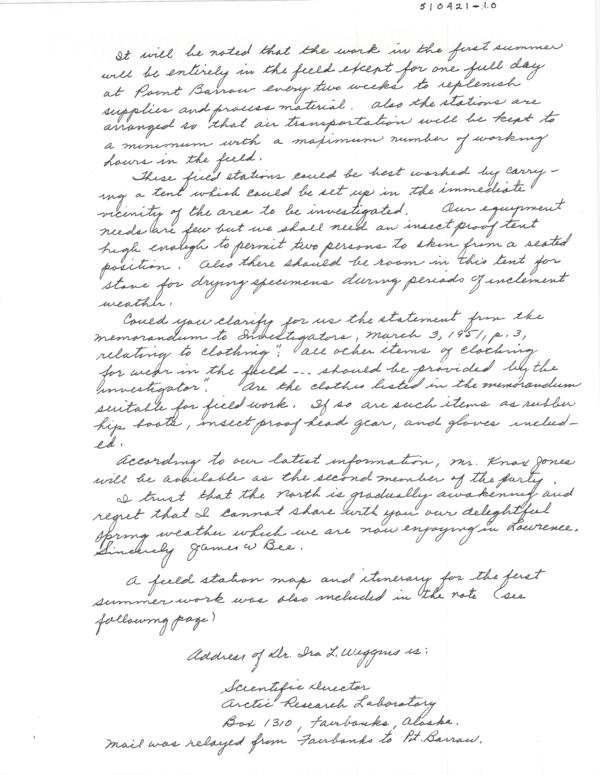 510421-10
It will be noted that the work in the first summer
will be entirely in the field except for one full day
at Point Barrow every two weeks to replenish
supplies and process material. Also the stations are
arranged so that air transportation will be kept to
a minimum with a maximum number of working
hours in the field.
These field stations could be best worked by carry-
ing a tent which could be set up in the immediate
vicinity of the area to be investigated. Our equipment
needs are few but we shall need an insect proof tent
high enough to permit two persons to skin from a seated
position. Also there should be room in this tent for
stove for drying specimens during periods of inclement
weather.
Could you clarify for us the statement from the
memorandum to Investigators, March 3, 1951, p. 3,
relating to clothing": all other items of clothing
for wear in the field --- should be provided by the
investigator". Are the clothes listed in the memorandum
suitable for field work. If so are such items as rubber
hip boots, insect proof head gear, and gloves includ-
ed.
According to our latest information, Mr. Knox Jones
will be available as the second member of the party.
I trust that the North is gradually awakening and
regret that I cannot share with you our delightful
spring weather which we are now enjoying in Lawrence.
Sincerely James W Bee.
A field station map and itinerary for the first
summer work was also included in the note (see
following page)
Address of Dr. Ira L. Wiggins is:
Scientific Director
Arctic Research Laboratory
Box 1310, Fairbanks, Alaska.
Mail was relayed from Fairbanks to Pt. Barrow.